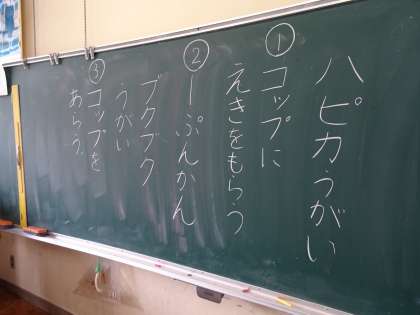 ハピカうがい
①コップに
えきをもらう
②一ぷんかん
ブクブク
うがい
③コップを
あらう。